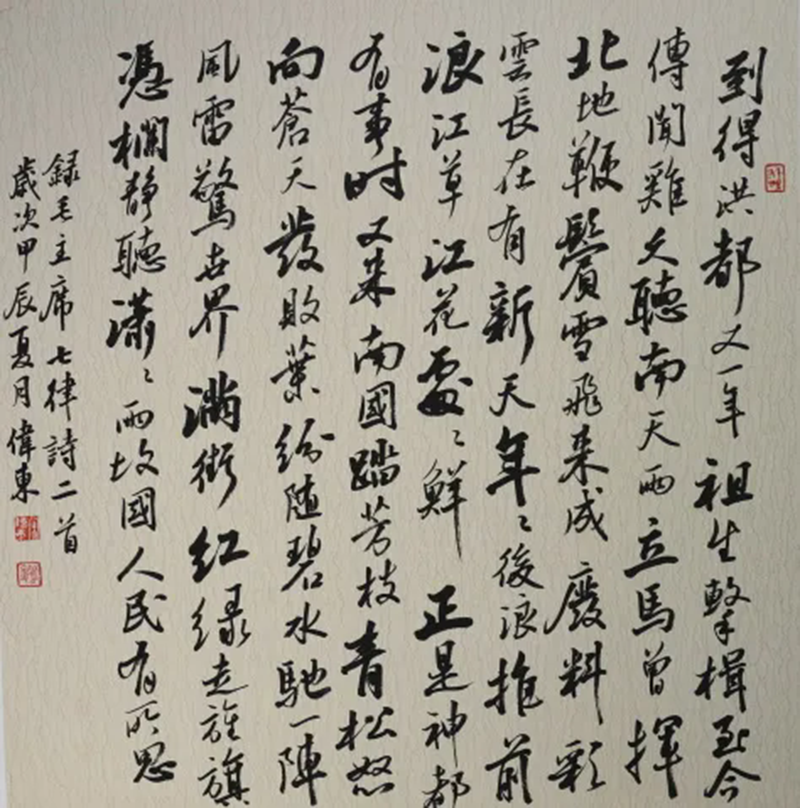 到得洪都又一年祖生擊楫至今
傳聞雞久聽南天雨立馬曾揮
北地鞭鬢雪飛来成廢料彩
雲長在有新天年〻後浪推前
浪江草江花處〻鮮正是神都
有事时又来南國踏芳枝青松怒
向蒼天發敗葉紛随碧水馳一陣
風雷驚世界滿街红绿走旌旗
憑欄静聽瀟〻雨故國人民有所思
録毛主席七律詩二首
歲次甲辰夏月偉東